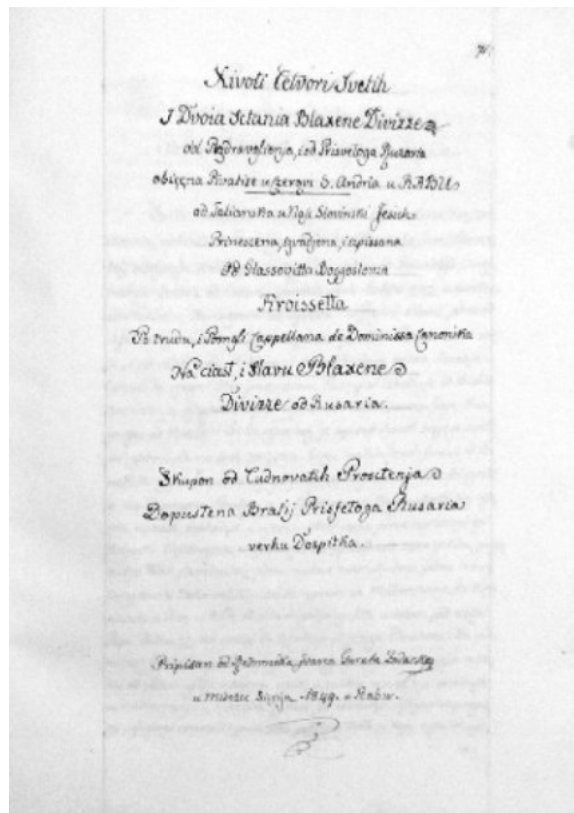 Xivoti Cetvori Svetih
I Dvoia Sctania Blaxene Divizze
od Pozdravglienja, i od Prisvetoga Rusaria
obicçna Pivatise u czergvi S. Andria u RABU
od Talianska u Nasc Slovinski Jesick
Prinescena, i
Od Glassovitta Boggoslovza
Froissetta
Po trudu, i Pomgli Cappellana de Dominissa Canonika
Na ciast, i slavu Blaxene
Divizze od Rusaria.
Skupon od Cudnovatih Prosctenja
Dopustena Bratij Prisfetoga Rusaria
verhu Dospitka.
Pripissan od
u misecc -1849. u Rabu.